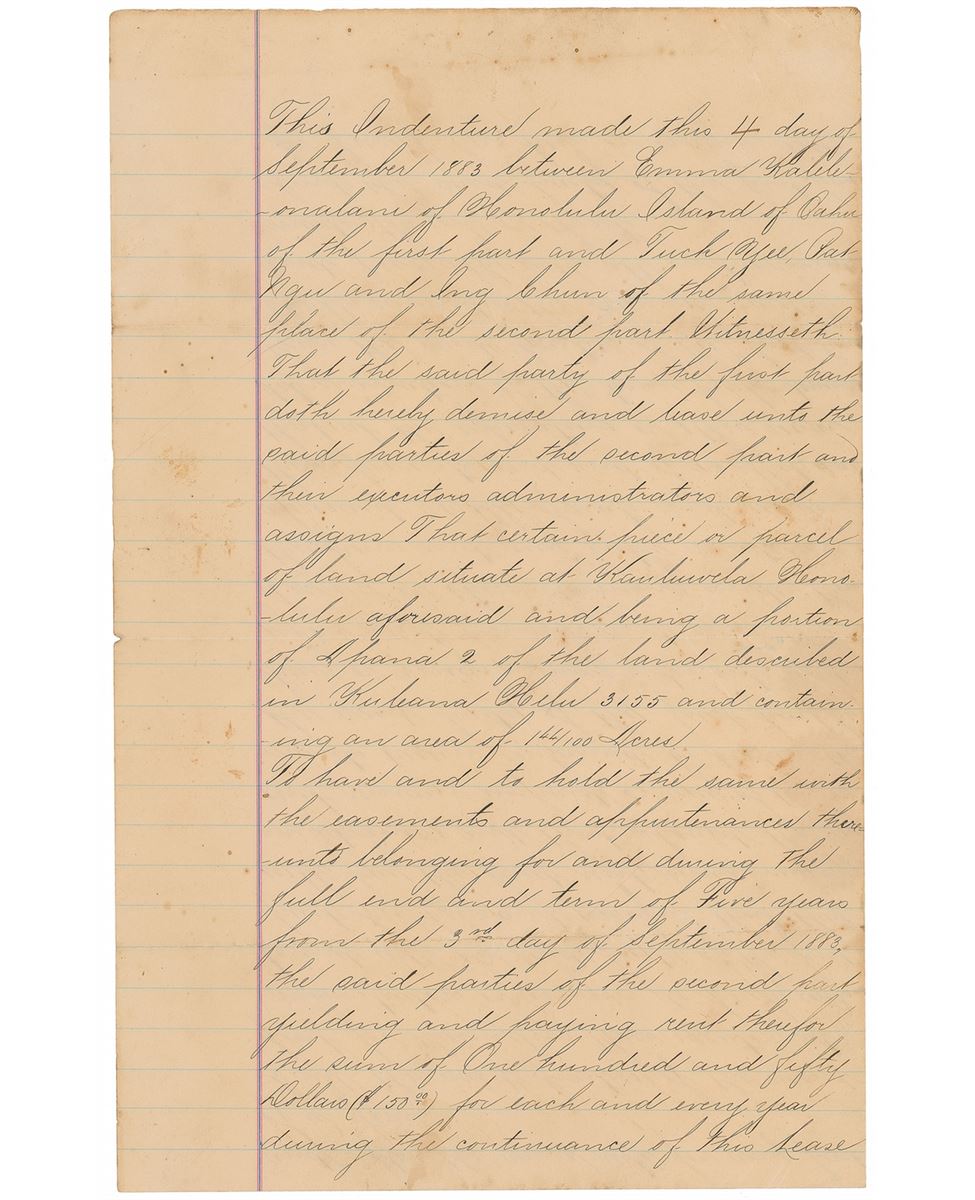 This Indenture made this 4 day of
September 1883 between Emma Kalele-
-onalani of Honolulu Island of Oahu
of the first part and Tuck Yee, Pat
Ngu and Ing Chun of the same
place of the second part Witnesseth.
That the said party of the first part
doth hereby demise and lease unto the
said parties of the second part and
their executors administrators and
assigns That certain piece or parcel
of land situate at Kauluwela Hono-
-lulu aforesaid and being a portion
of Apana 2 of the land described
in Kuleana Helu 3155 and contain-
-ing an area of Acres
To have and to hold the same with
the easements and appurtenances there-
-unto belonging for and during the
full end and term of Five years
from the 3rd day of September 1883,
the said parties of the second part
yielding and paying rent therefor
the sum of One hundred and fifty
Dollars ($150.00) for each and every year
during the continuance of this Lease